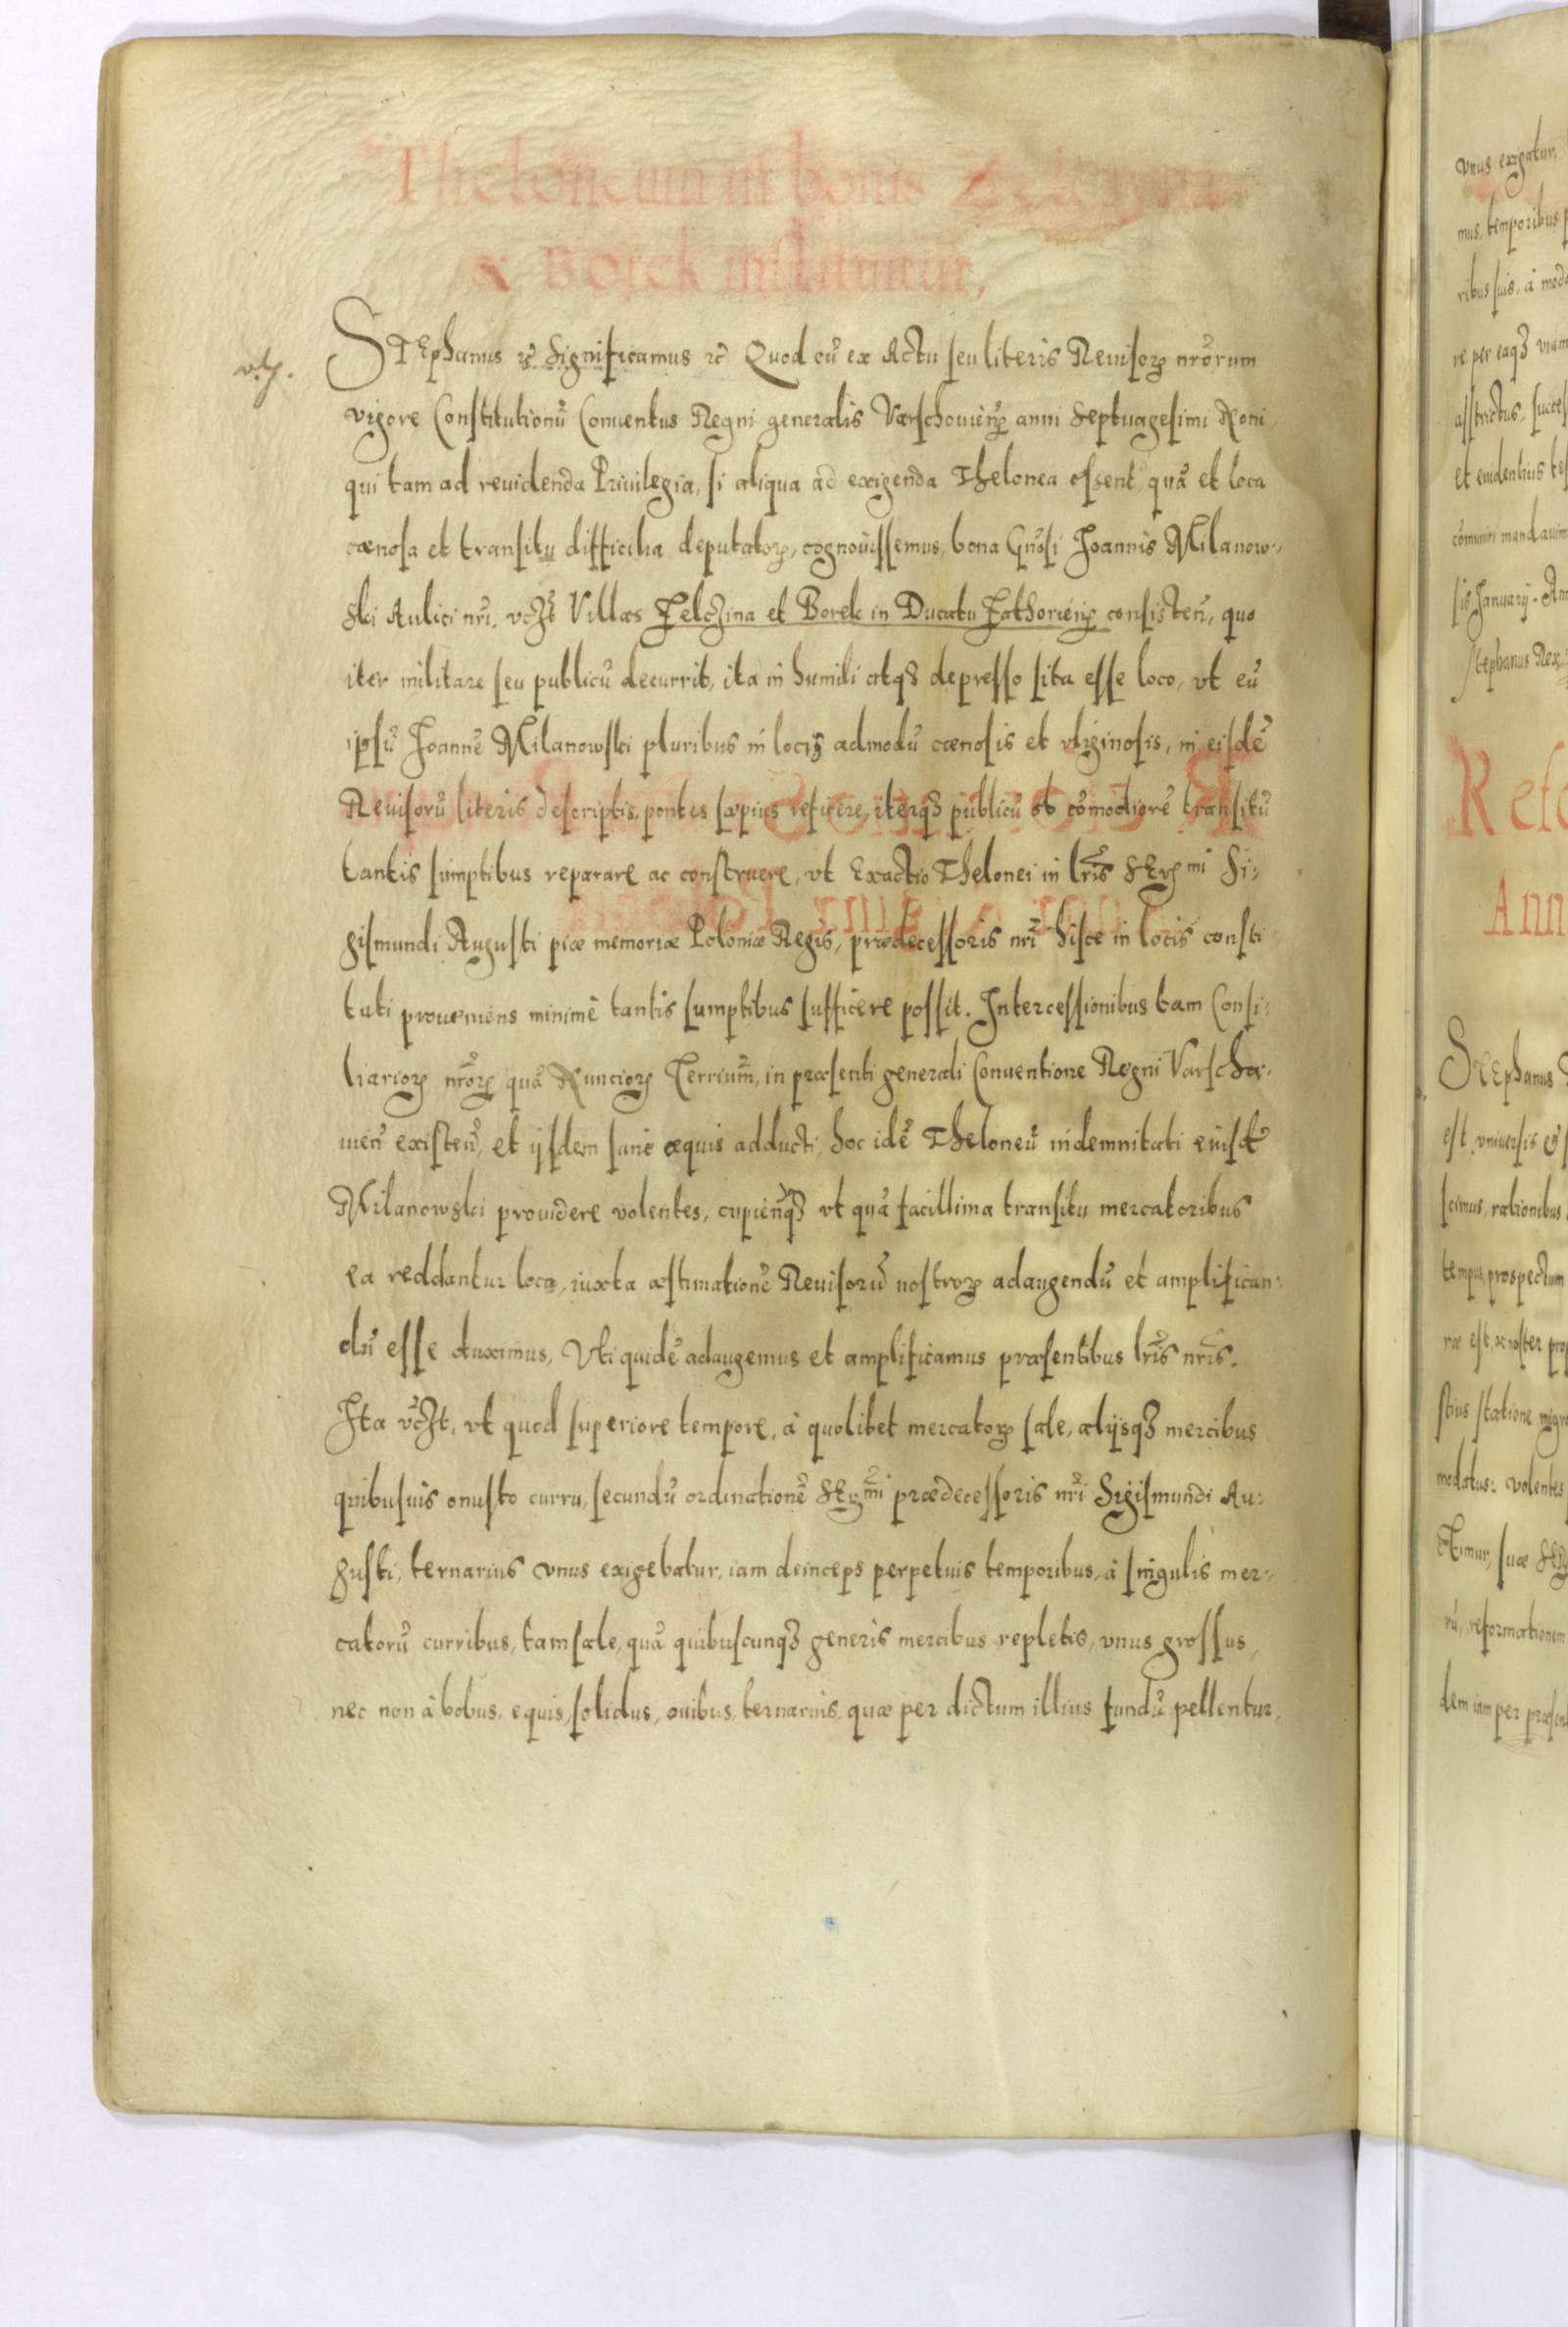 Theloneum in bonis Zelczyna
& Borek instituitur,
STEphanus ꝛc̃ Significamus ꝛc̃ Quod cũ ex Actu seu literis Reuisorꝫ nrõrum
vigore Constitutionũ Conuentus Regni generalis Varschouieñ anni Septuagesimi Noni,
qui tam ad reuidenda Priuilegia, si aliqua ad exigenda Thelonea essent quã et loca
cœnosa et transitu difficilia deputatorꝫ, cognouissemus, bona Gnõsi Joannis Milanow:
ski Aulici nrĩ, vczt Villas Zelczina et Borek in Ducatu Zathorieñ consisteñ, quo
iter militare seu publicũ decurrit, ita in humili atqꝫ depresso sita esse loco, vt eũ
ipsũ Joannẽ Milanowski pluribus in locis admodũ cœnosis et vliginosis, in eisdẽ
Reuisorũ literis descriptis, pontes sæpius reficere, iterqꝫ publicũ ob cõmodiorẽ transitũ
tantis sumptibus reparare ac construere, vt Exactio Thelonei in lrĩs SEr mi Si:
gismundi Augusti piæ memoriæ Poloniæ Regis, prædecessoris nrĩ hisce in locis consti
tuti proueniens minimè tantis sumptibus sufficere possit. Intercessionibus tam Consi:
liariorꝫ nrõrꝫ quã Nunciorꝫ Terriurm̃, in præsenti generali Conuentione Regni Varscho:
uieñ existeñ, et ijsdem sanè æquis adducti, hoc idẽ Theloneũ indemnitati eiusdẽ
Milanowski prouidere volentes, cupieñqꝫ vt quã facillima transitu mercatoribus
ea reddantur loca, iuxta æstimationẽ Reuisorũ nostrorꝫ adaugendũ et amplifican:
dũ esse duximus, Vti quidẽ adaugemus et amplificamus præsentibus lrĩs nrĩs.
Ita vczt, vt quod superiore tempore, à quolibet mercatorꝫ sale, alijsqꝫ mercibus
quibusuis onusto curru, secundũ ordinationẽ SEr mi prædecessoris nrĩ Sigismundi Au:
gusti, ternarius vnus exigebatur, iam deinceps perpetuis temporibus, à singulis mer:
catorũ curribus, tam sale, quã quibuscunqꝫ generis mercibus repletis, vnus grossus,
nec non à bobus, equis, solidus, ouibus, ternarius, quæ per dictum illius fundũ pellentur,
vnus exigatur,
mus, temporibus
ribus suis, à mode
re per eaqꝫ viam
asstrictus, succes
et euidentius tes
cõmuniri mandauim
sis January. An
Stephanus Rex
Refo
Ann
STEphanus
est vniuersis &
scimus, rationibus
tempus, prospectum
ræ est, ac noster pro
stius statione migra
modatus: volentes
ctimur, suæ SEr
rũ, reformationem
dem iam per præsen